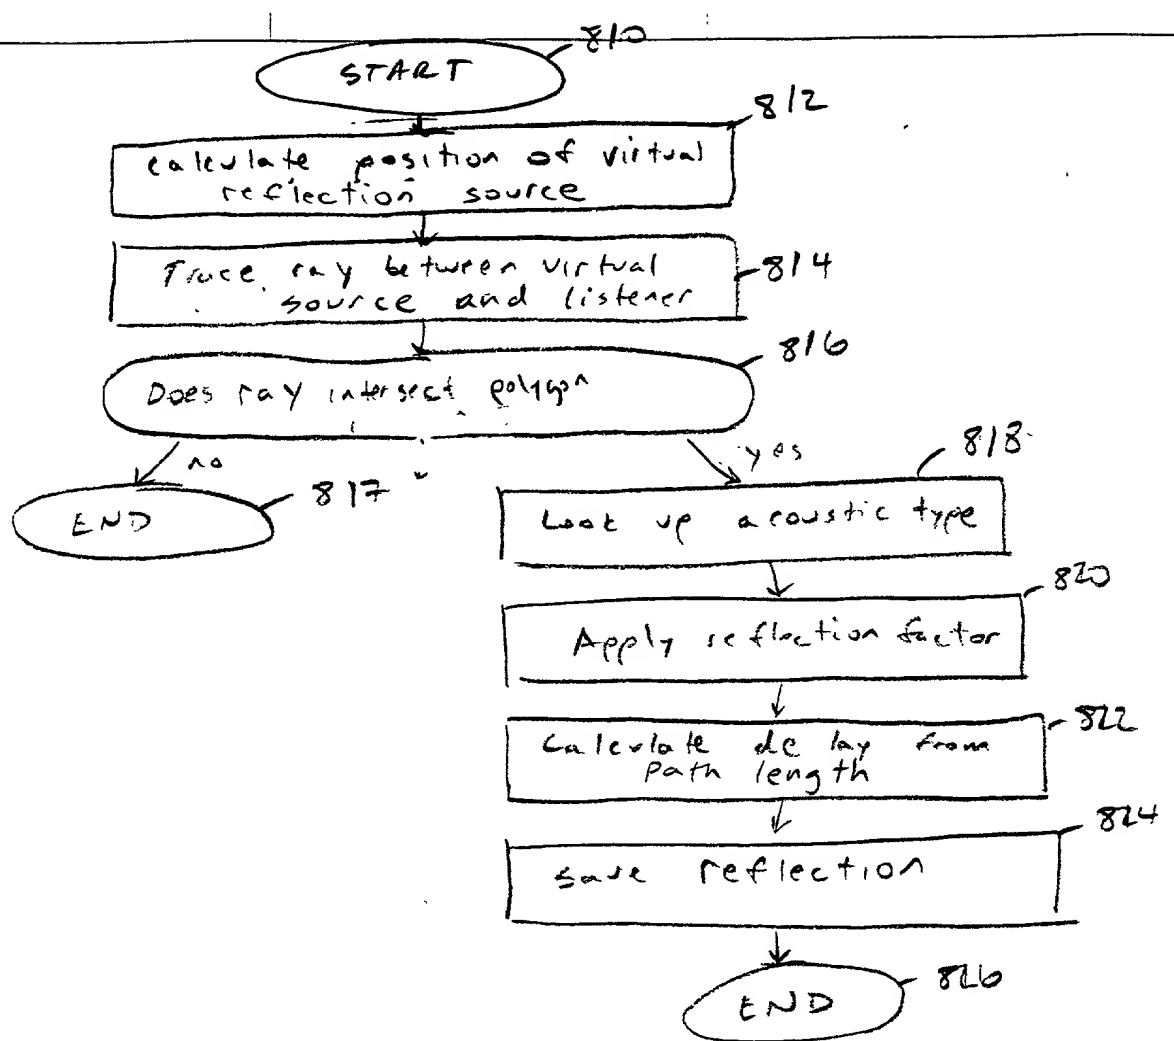 810
START
812
calculate position of virtual
reflection source
Trace ray between virtual
source and listener
814
816
Does ray intersect polygon
no
yes
818
END
817
Look up acoustic type
820
Apply reflection factor
822
Calculate delay from
path length
824
save reflection
826
END